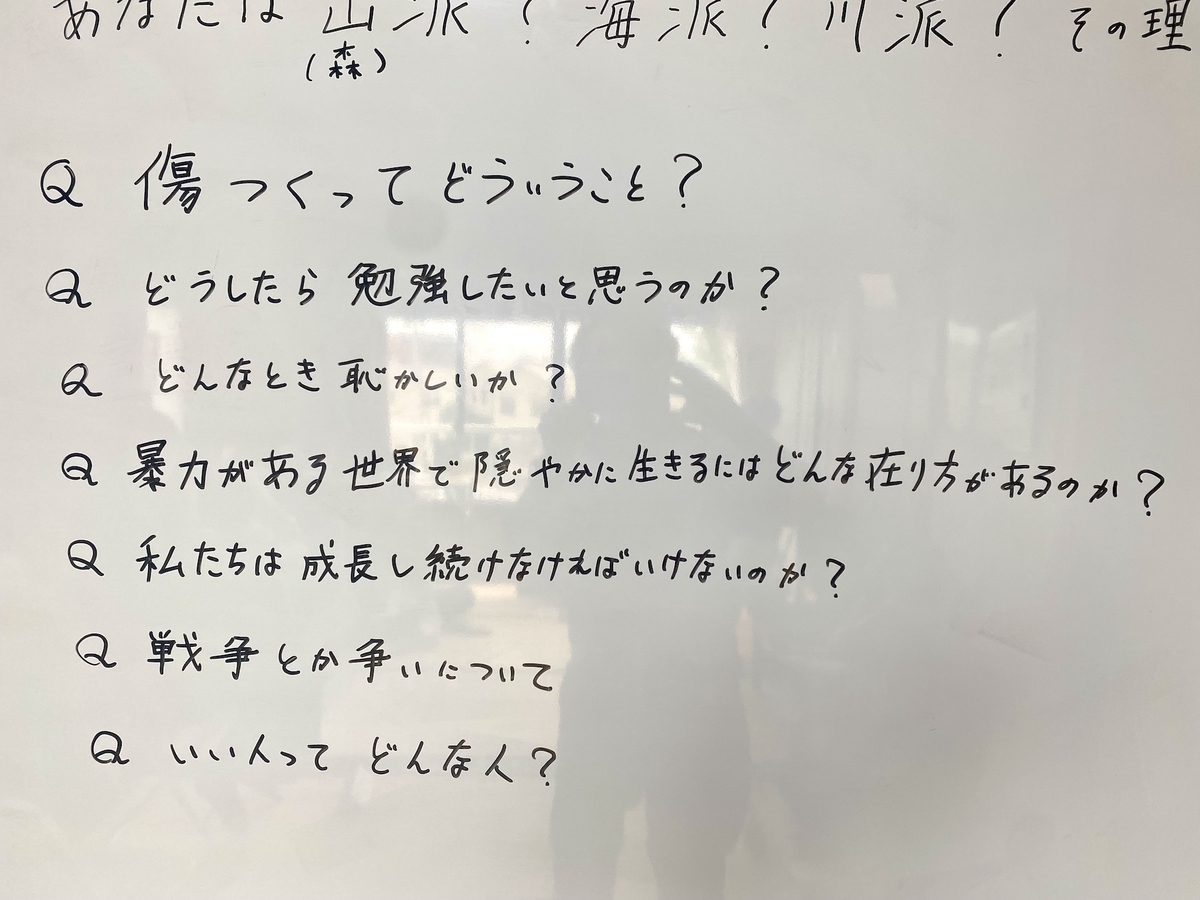 あなたは山派？海派？川派？その理
（森）
Q 傷つくってどういうこと？
Q どうしたら勉強したいと思うのか？
Q どんなとき恥かしいか？
Q 暴力がある世界で隠やかに生きるにはどんな在り方があるのか？
Q 私たちは成長し続けなければいけないのか？
Q 戦争とか争いについて
Q いい人ってどんな人？